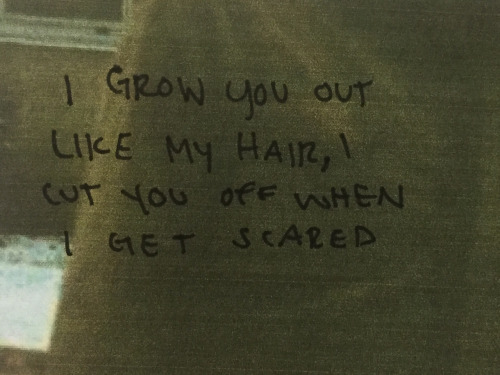 I GROW YOU OUT
LIKE MY HAIR, I
CUT YOU OFF WHEN
I GET SCARED